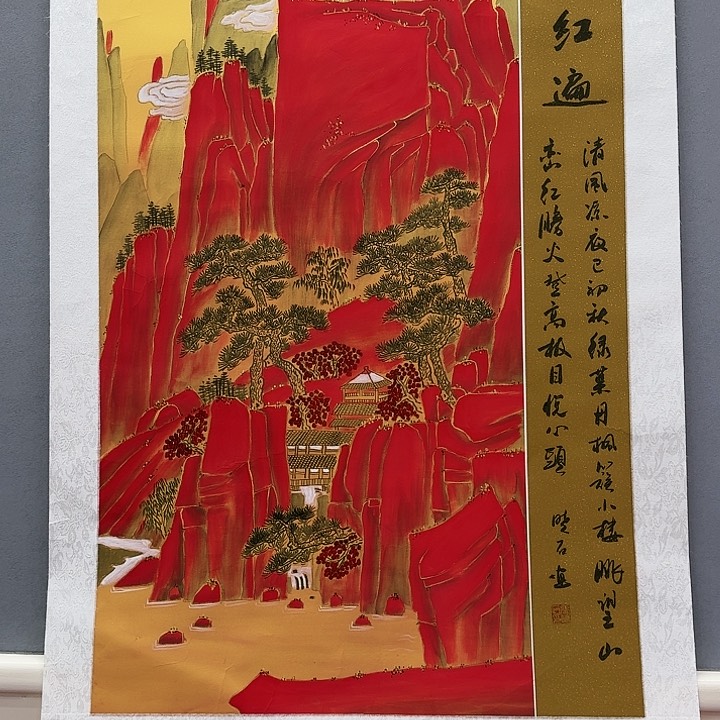 红遍
清风凉夜已初秋绿叶丹枫簇小楼眺望山
峦红胜火登高极目悦心头
野石画